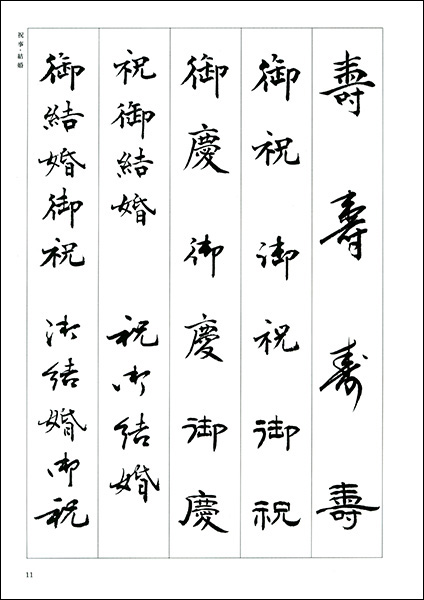 祝事・結婚
壽 壽 寿 壽
御祝 御祝 御祝
御慶 御慶 御慶
祝御結婚 祝御結婚
御結婚御祝 御結婚御祝
11